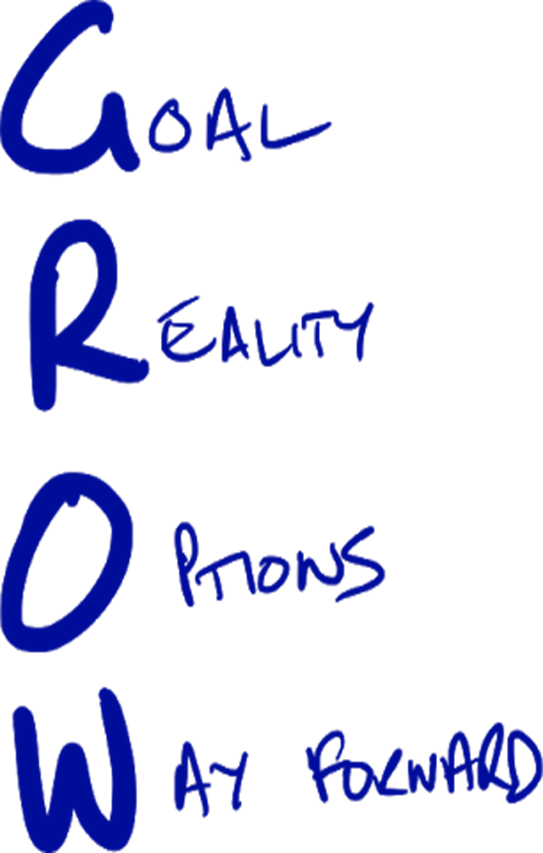 GOAL
REALITY
OPTIONS
WAY FORWARD